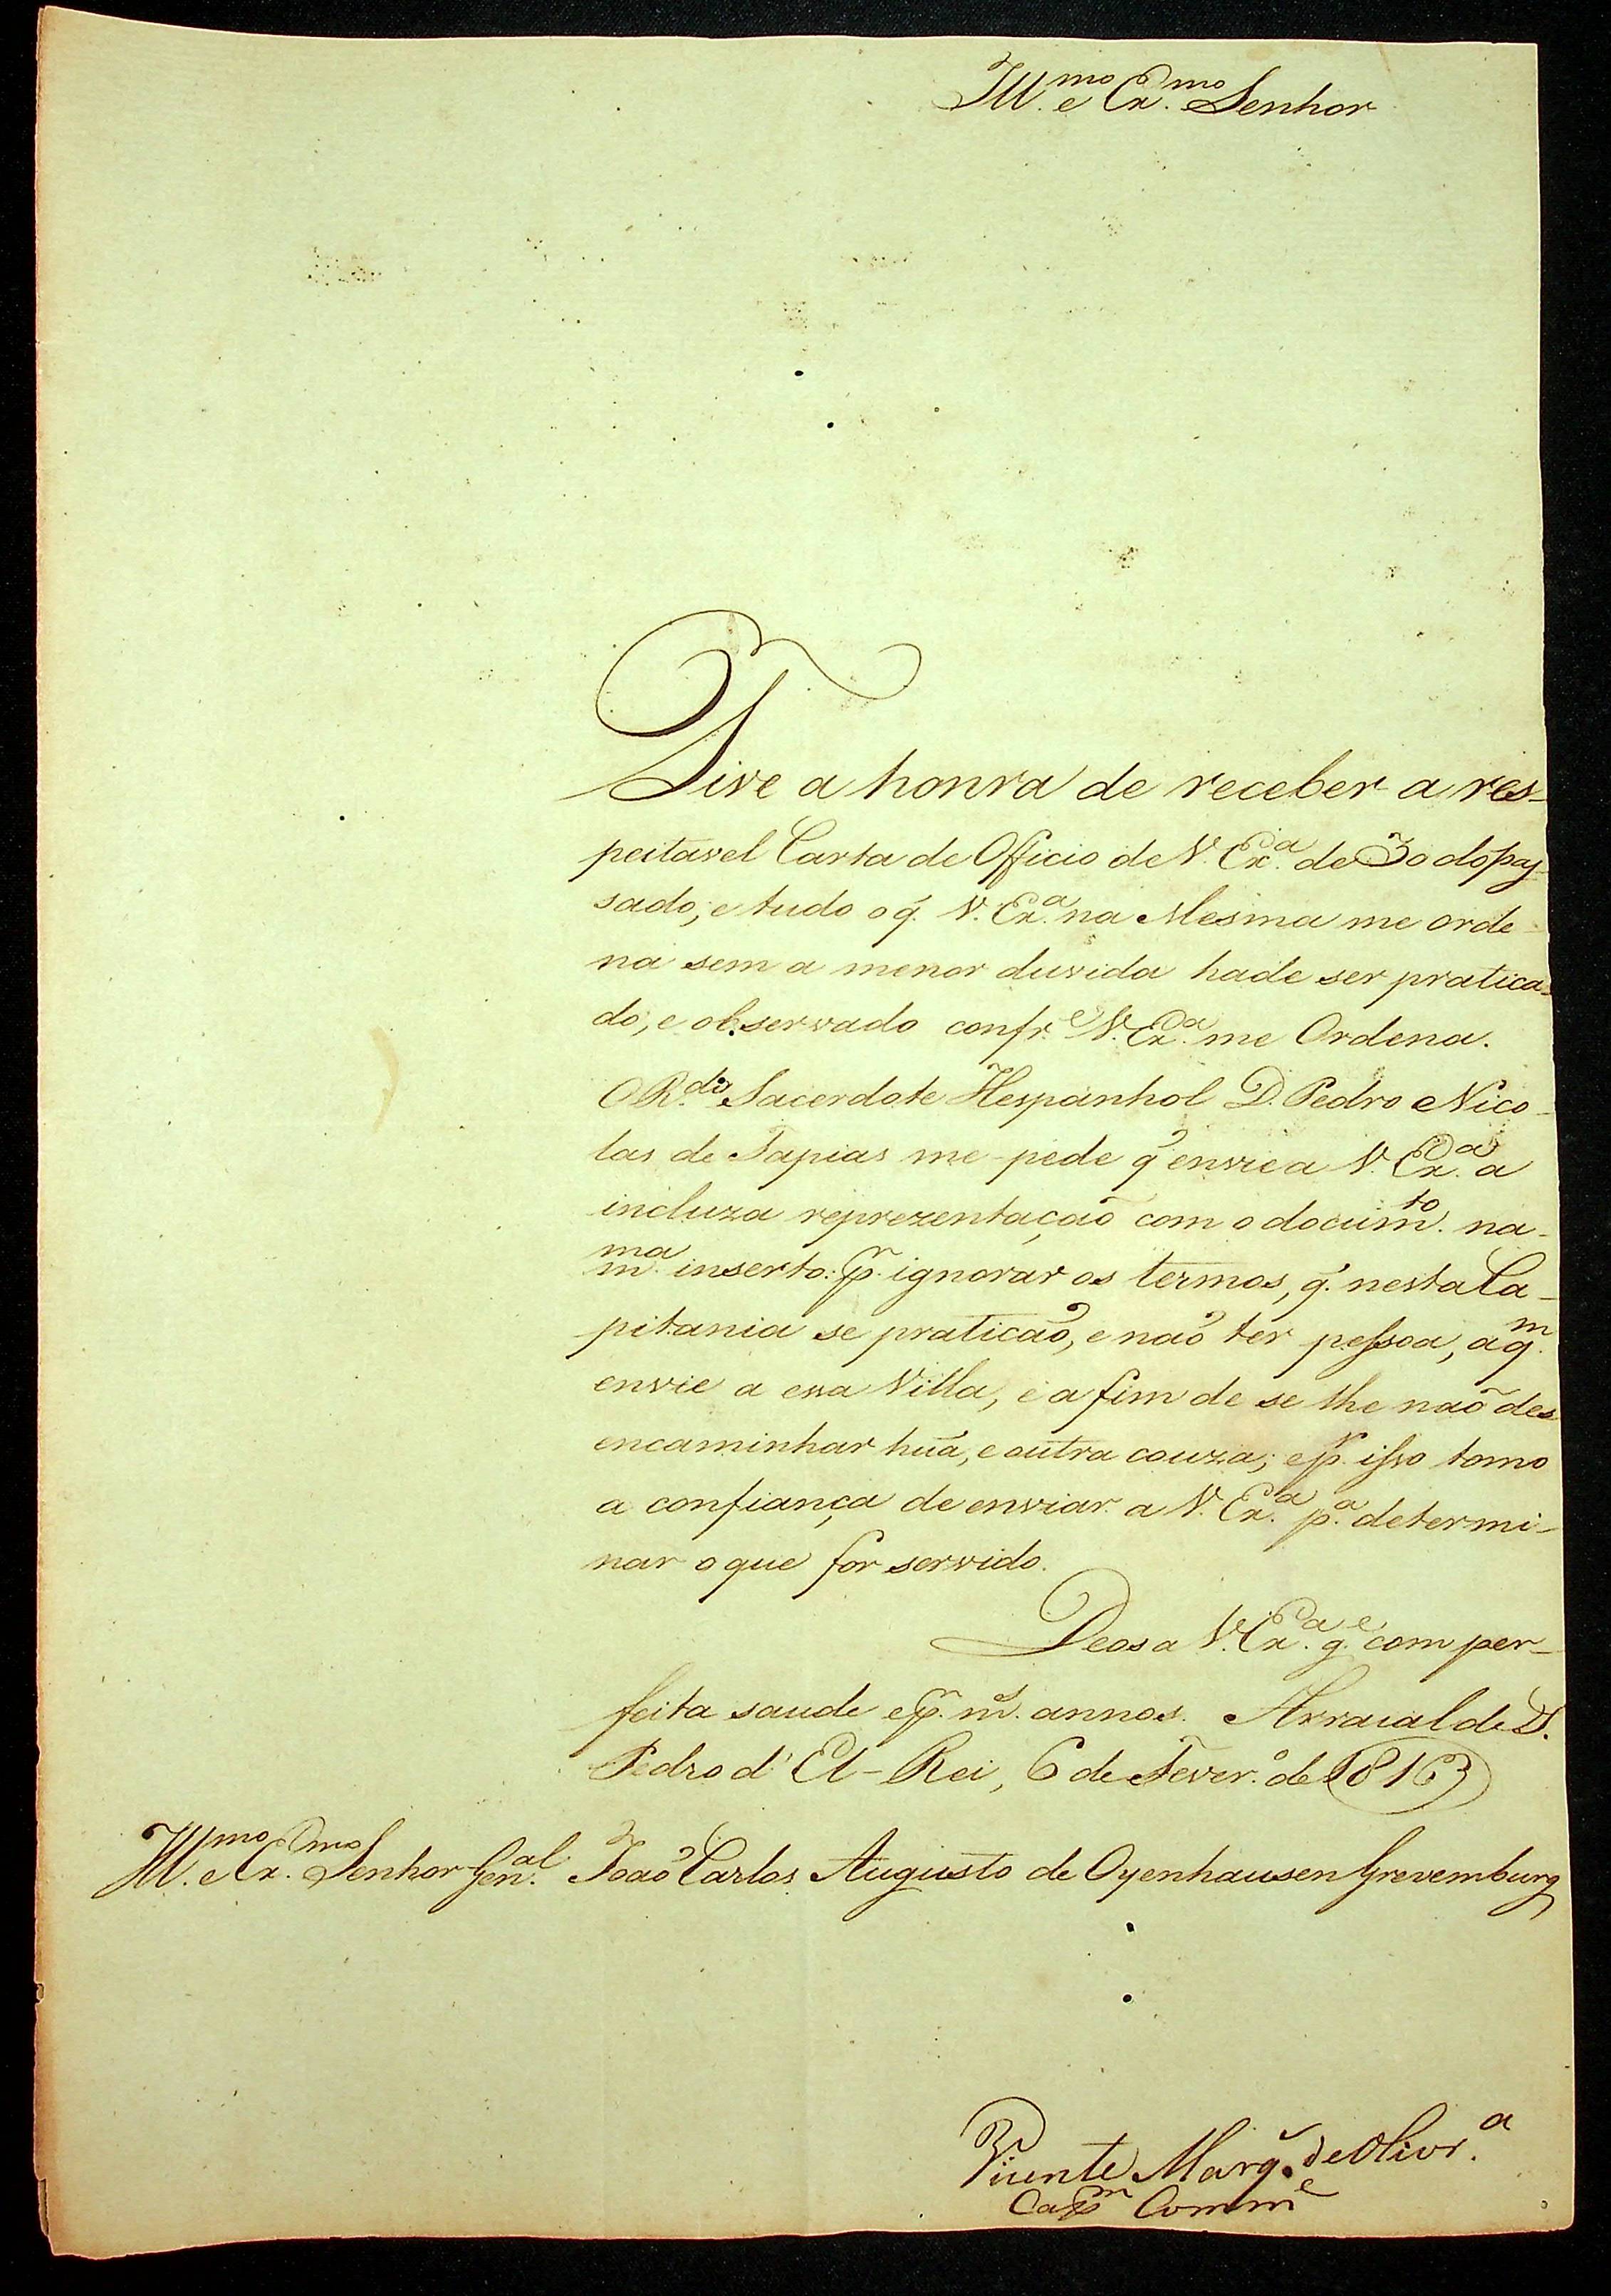 Ill.mo e Ex.mo Senhor
Tive a honra de receber a res-
peitavel Carta de Officio de V. Ex.a de 30 do pas-
sado, e tudo o q̃. V. Ex.a na Mesma me orde-
na sem a menor duvida hade ser pratica-
do, e observado confr.e V. Ex.a me Ordena.
O R.do Sacerdote Hespanhol D. Pedro Nico-
las de Tapias me pede q̃ envie a V. Ex.a a
incluza reprezentação com o docum.to na
m.ma inserto: p.r ignorar os termos, q̃. nesta Ca-
pitania se praticaõ, e naõ ter pessoa, a q.m
envie a essa Villa, e a fim de se lhe naõ des
encaminhar hũa, e outra couza; e p.r isso tomo
a confiança de enviar a V. Ex.a p.a determi-
nar o que for servido.
Deos a V. Ex.a g.e com per-
feita saude e p.r m.s annos. Arraial de S.
Pedro d' El-Rei, 6 de Fever.o de 1816
Ill.mo e Ex.mo Senhor Gen.al Joaõ Carlos Augusto de Oyenhausen Grevemburg
Vicente Marq.s de Olivr.a
Cap.m Comm.e